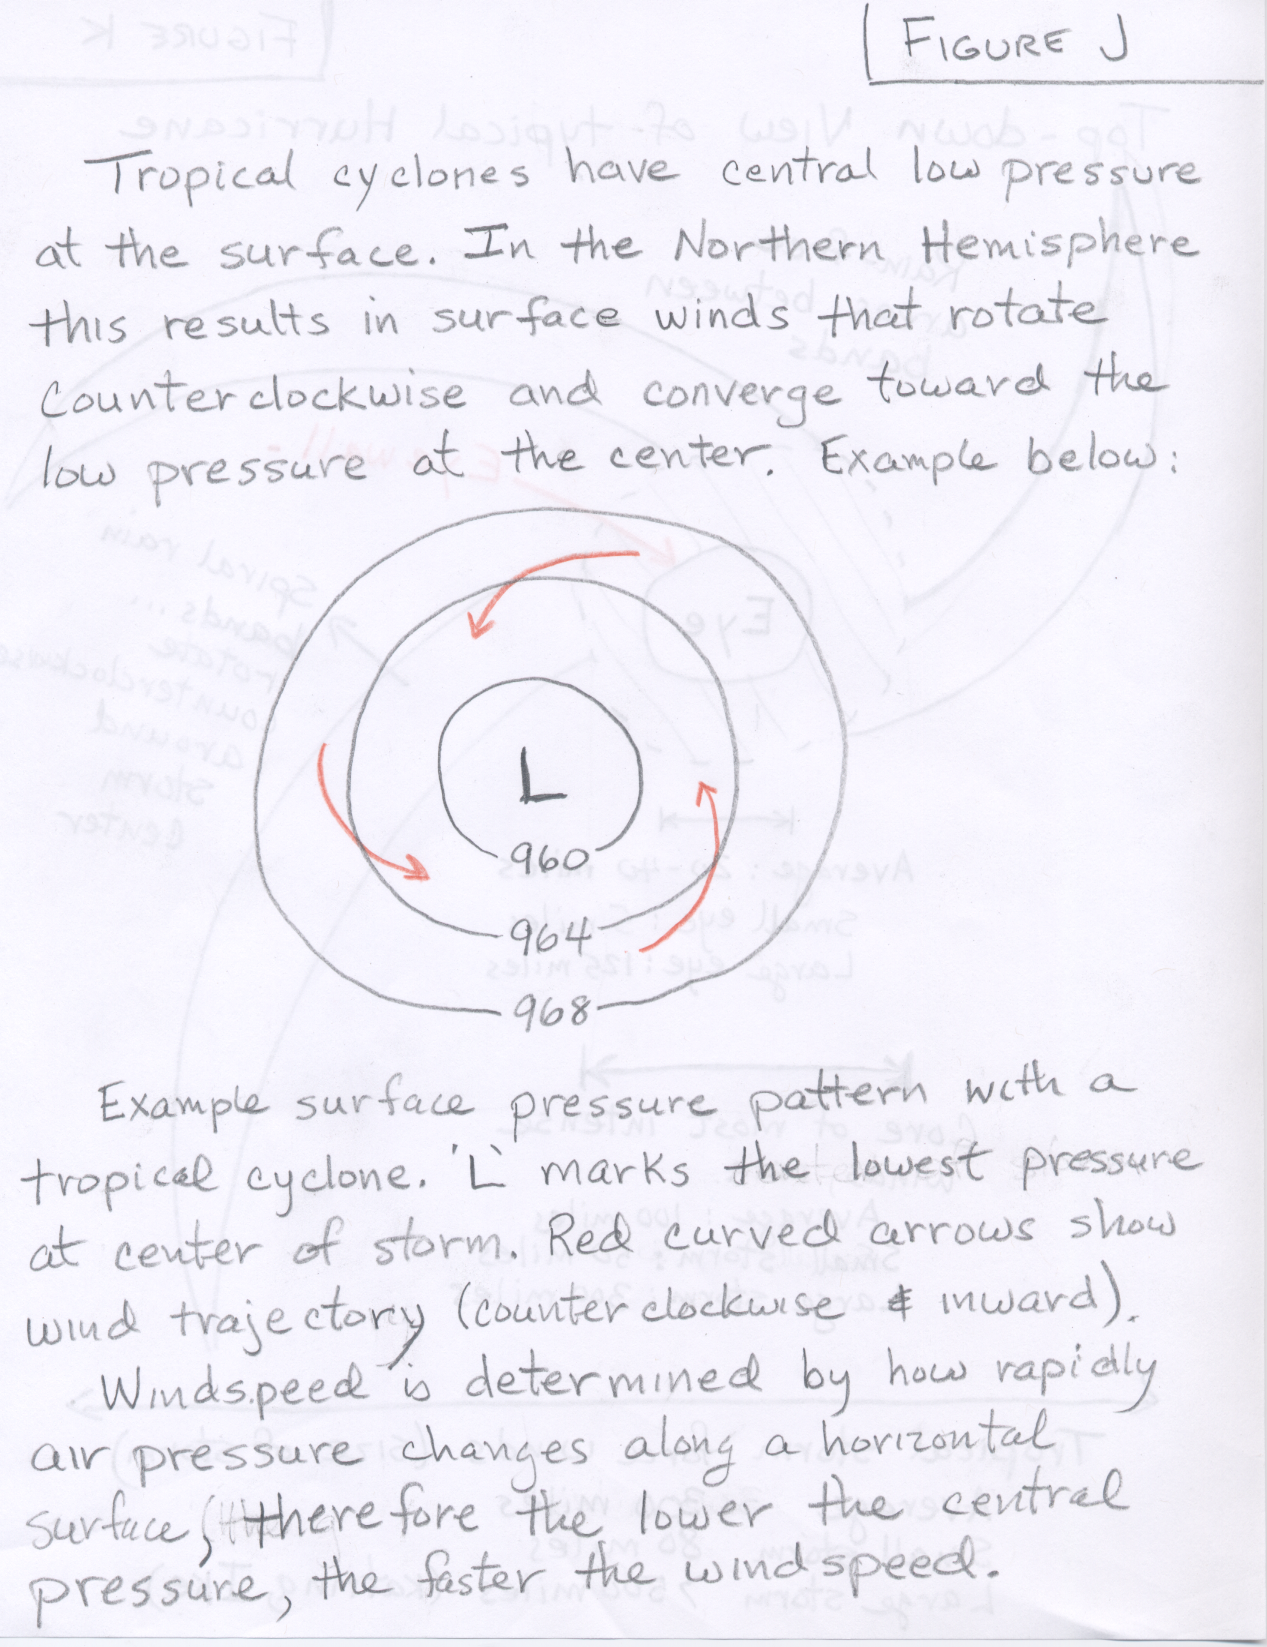 FIGURE J
Tropical cyclones have central low pressure
at the surface. In the Northern Hemisphere
this results in surface winds that rotate
counterclockwise and converge toward the
low pressure at the center. Example below:
L
960
964
968
Example surface pressure pattern with a
tropical cyclone. 'L' marks the lowest pressure
at center of storm. Red curved arrows show
wind trajectory (counterclockwise & inward).
Windspeed is determined by how rapidly
air pressure changes along a horizontal
surface, therefore the lower the central
pressure, the faster the windspeed.